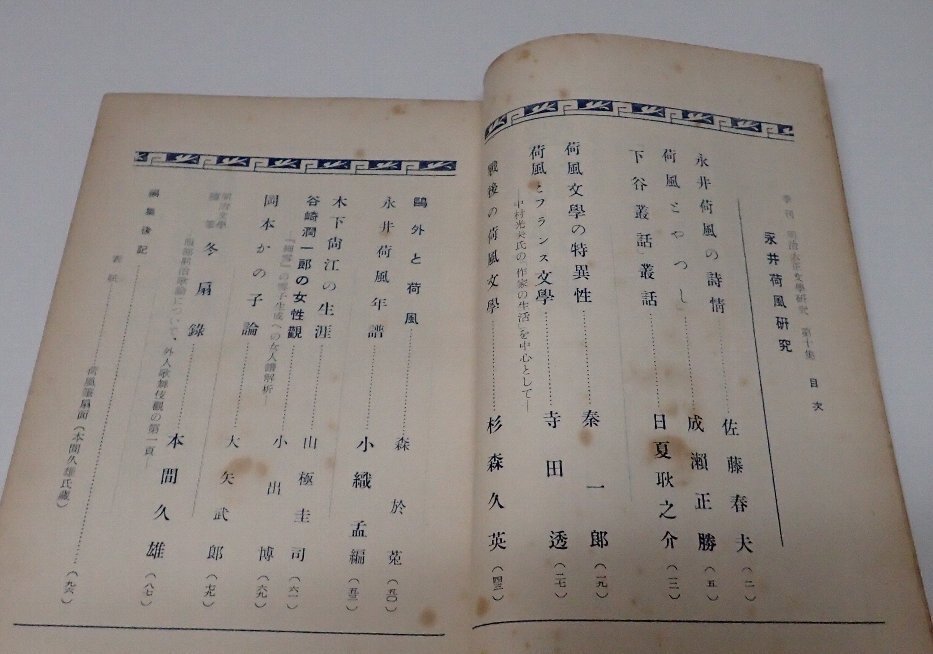 季刊 明治大正文學研究 第十集 目次
永井荷風研究
永井荷風の詩情………佐藤春夫（一）
荷風とやつし………成瀨正勝（五）
「下谷叢話」叢話………日夏耿之介（一二）
荷風文學の特異性………秦一郎（一九）
荷風とフランス文學………寺田透（二七）
―中村光夫氏の「作家の生活」を中心として―
戰後の荷風文學………杉森久英（四三）
鷗外と荷風………森於菟（五〇）
永井荷風年譜………小織孟編（五三）
木下尙江の生涯………山極圭司（六一）
谷崎潤一郎の女性觀………小出博（六九）
―『細雪』の雪子生成への女人譜解析―
岡本かの子論………大矢武郎（七九）
明治文學隨筆 冬扇錄………本間久雄（八七）
歌論について、外人歌舞伎觀の第一頁―
編集後記
表紙 荷風筆扇面（本間久雄氏藏）………（九六）